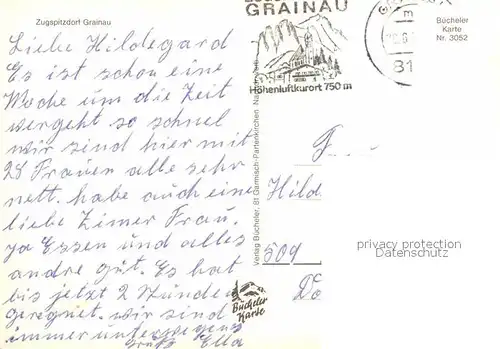 Zugspitzdorf Grainau
Liebe Hildegard
Es ist schon eine
Woche um die Zeit
vergeht so schnel
wir sind hier mit
28 Frauen alle sehr
nett. habe auch eine
liebe Zimer Frau.
ja Essen und alles
andre gut. Es hat
bis jetzt 2 Stunden
geregnet. wir sind
immer unterwegens
Gruß Ella
GRAINAU
Höhenluftkurort 750 m
81
Bücheler
Karte
Nr. 3052
Verlag Bücheler, 81 Garmisch-Partenkirchen
F
Hild
509
Do
privacy protection
Datenschutz
Bücheler
Karte